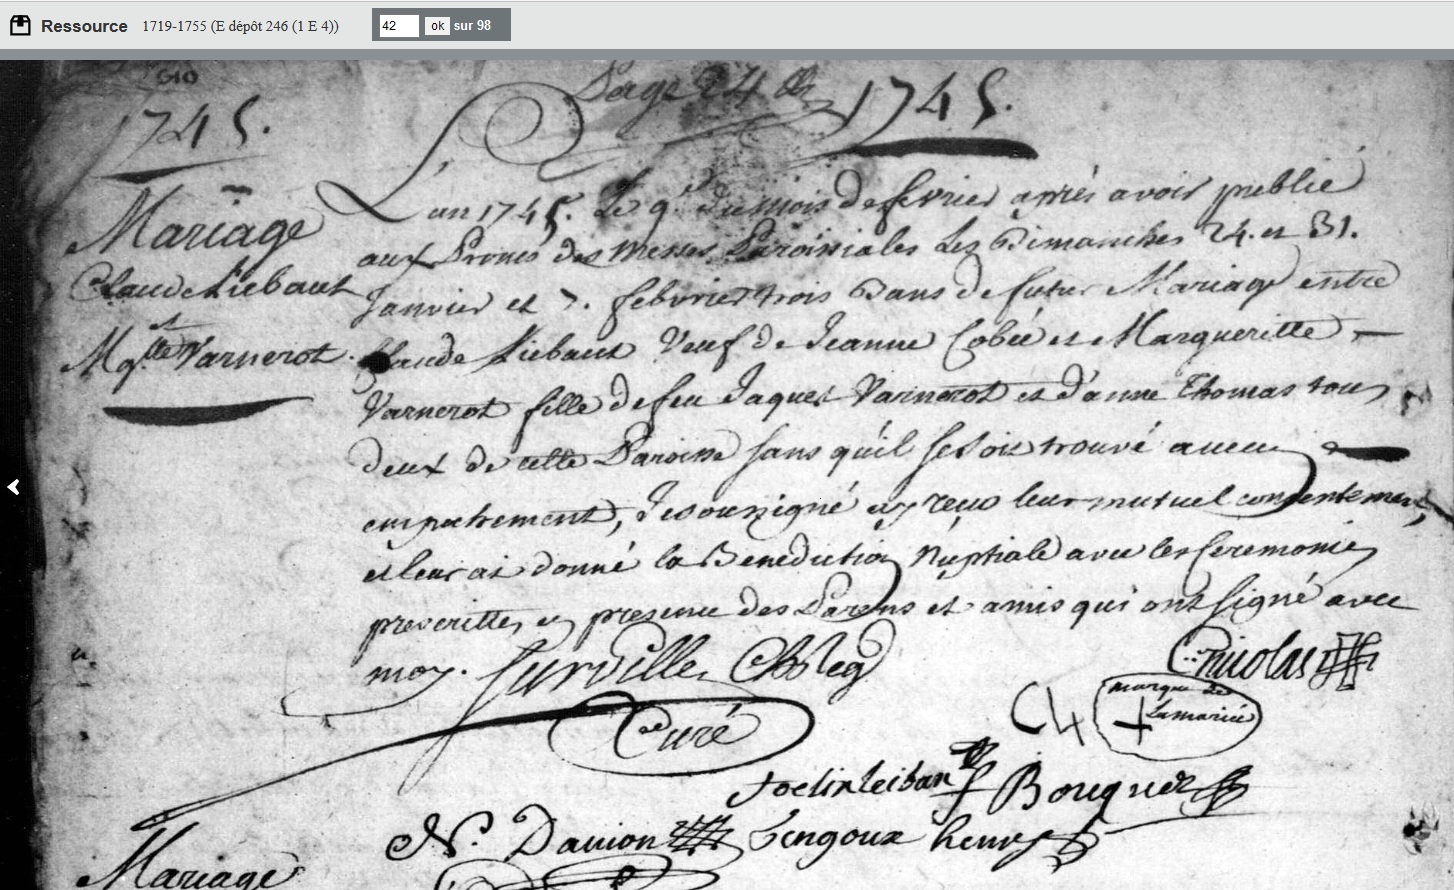 Ressource 1719-1755 (E dépôt 246 (1 E 4)) 42 ok sur 98
Page 24 1745.
1745.
Mariage
Claude Liebaut
et
Mgtte Varnerot.
L'an 1745. Le 9e du mois de fevrier aprés avoir publié
aux Prones des Messes Paroissiales Les Dimanches 24. et 31.
Janvier et 7. febvrier trois Bans de futur Mariage entre
Claude Liebaut Veuf de Jeanne Cobée et Margueritte
Varnerot fille de feu Jaques Varnerot et d'anne Thomas tous
deux de cette Paroisse sans qu'il se soit trouvé aucun
empechement, Je sousigné ay reçu leur mutuel consentement,
et leur ai donné la Benediction Nuptiale avec les Ceremonies
prescrittes en presence des Parens et amis qui ont signé avec
moy. Surville Curé
C nicolas
C L marque de
+ la mariée
Bouquer
N. Danion Lengoux henry
Mariage